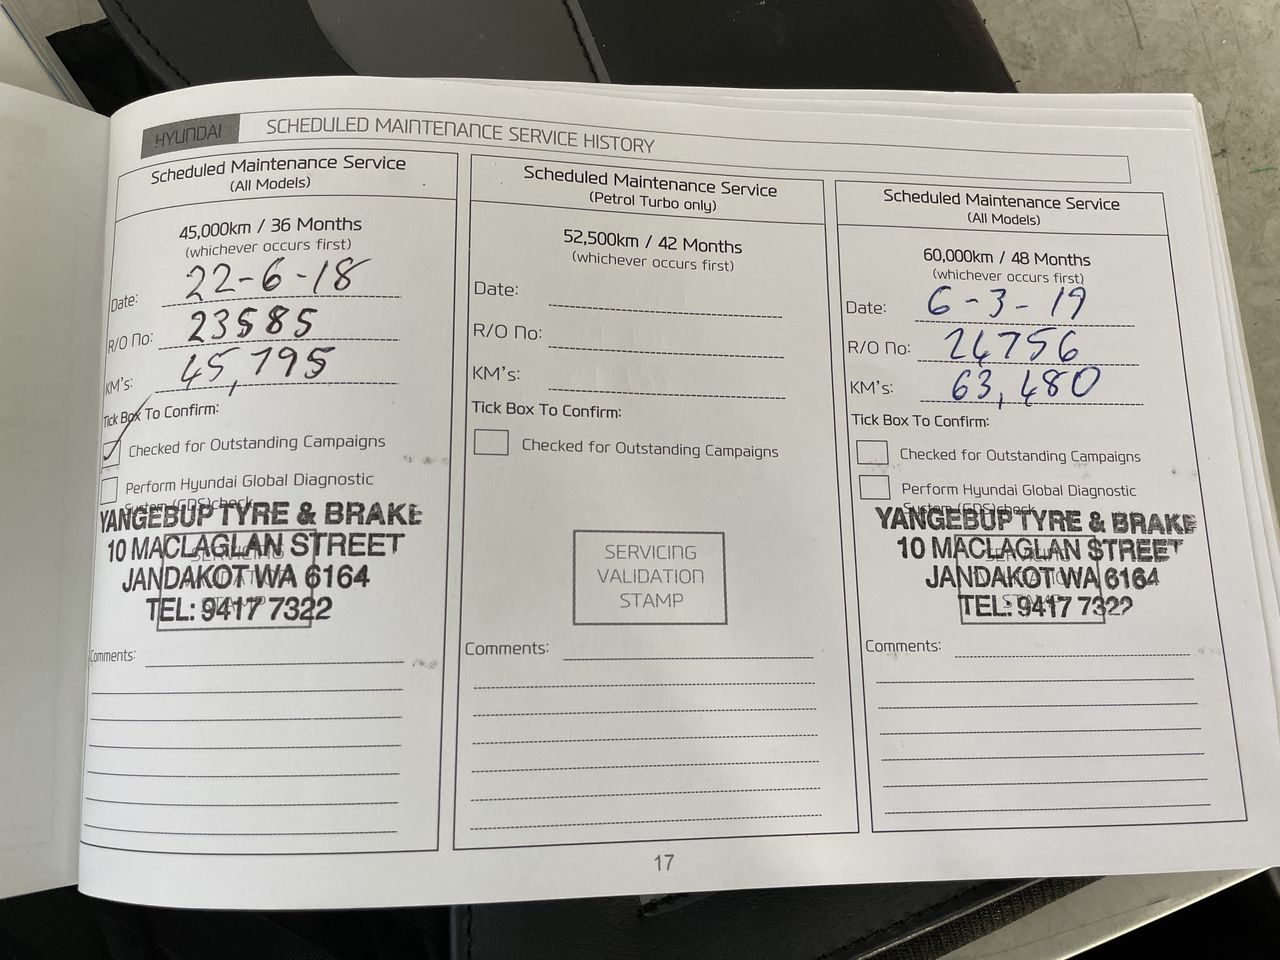 HYUNDAI SCHEDULED MAINTENANCE SERVICE HISTORY
Scheduled Maintenance Service
(All Models)
45,000km / 36 Months
(whichever occurs first)
Date: 22-6-18
R/O No: 23585
KM's: 45,795
Tick Box To Confirm:
Checked for Outstanding Campaigns
Perform Hyundai Global Diagnostic
System (GDS)check
YANGEBUP TYRE & BRAKE
10 MACLAGLAN STREET
JANDAKOT WA 6164
TEL: 9417 7322
Comments:
Scheduled Maintenance Service
(Petrol Turbo only)
52,500km / 42 Months
(whichever occurs first)
Date:
R/O No:
KM's:
Tick Box To Confirm:
Checked for Outstanding Campaigns
SERVICING
VALIDATION
STAMP
Comments:
Scheduled Maintenance Service
(All Models)
60,000km / 48 Months
(whichever occurs first)
Date: 6-3-19
R/O No: 24756
KM's: 63,480
Tick Box To Confirm:
Checked for Outstanding Campaigns
Perform Hyundai Global Diagnostic
System (GDS)check
YANGEBUP TYRE & BRAKE
10 MACLAGLAN STREET
JANDAKOT WA 6164
TEL: 9417 7322
Comments:
17